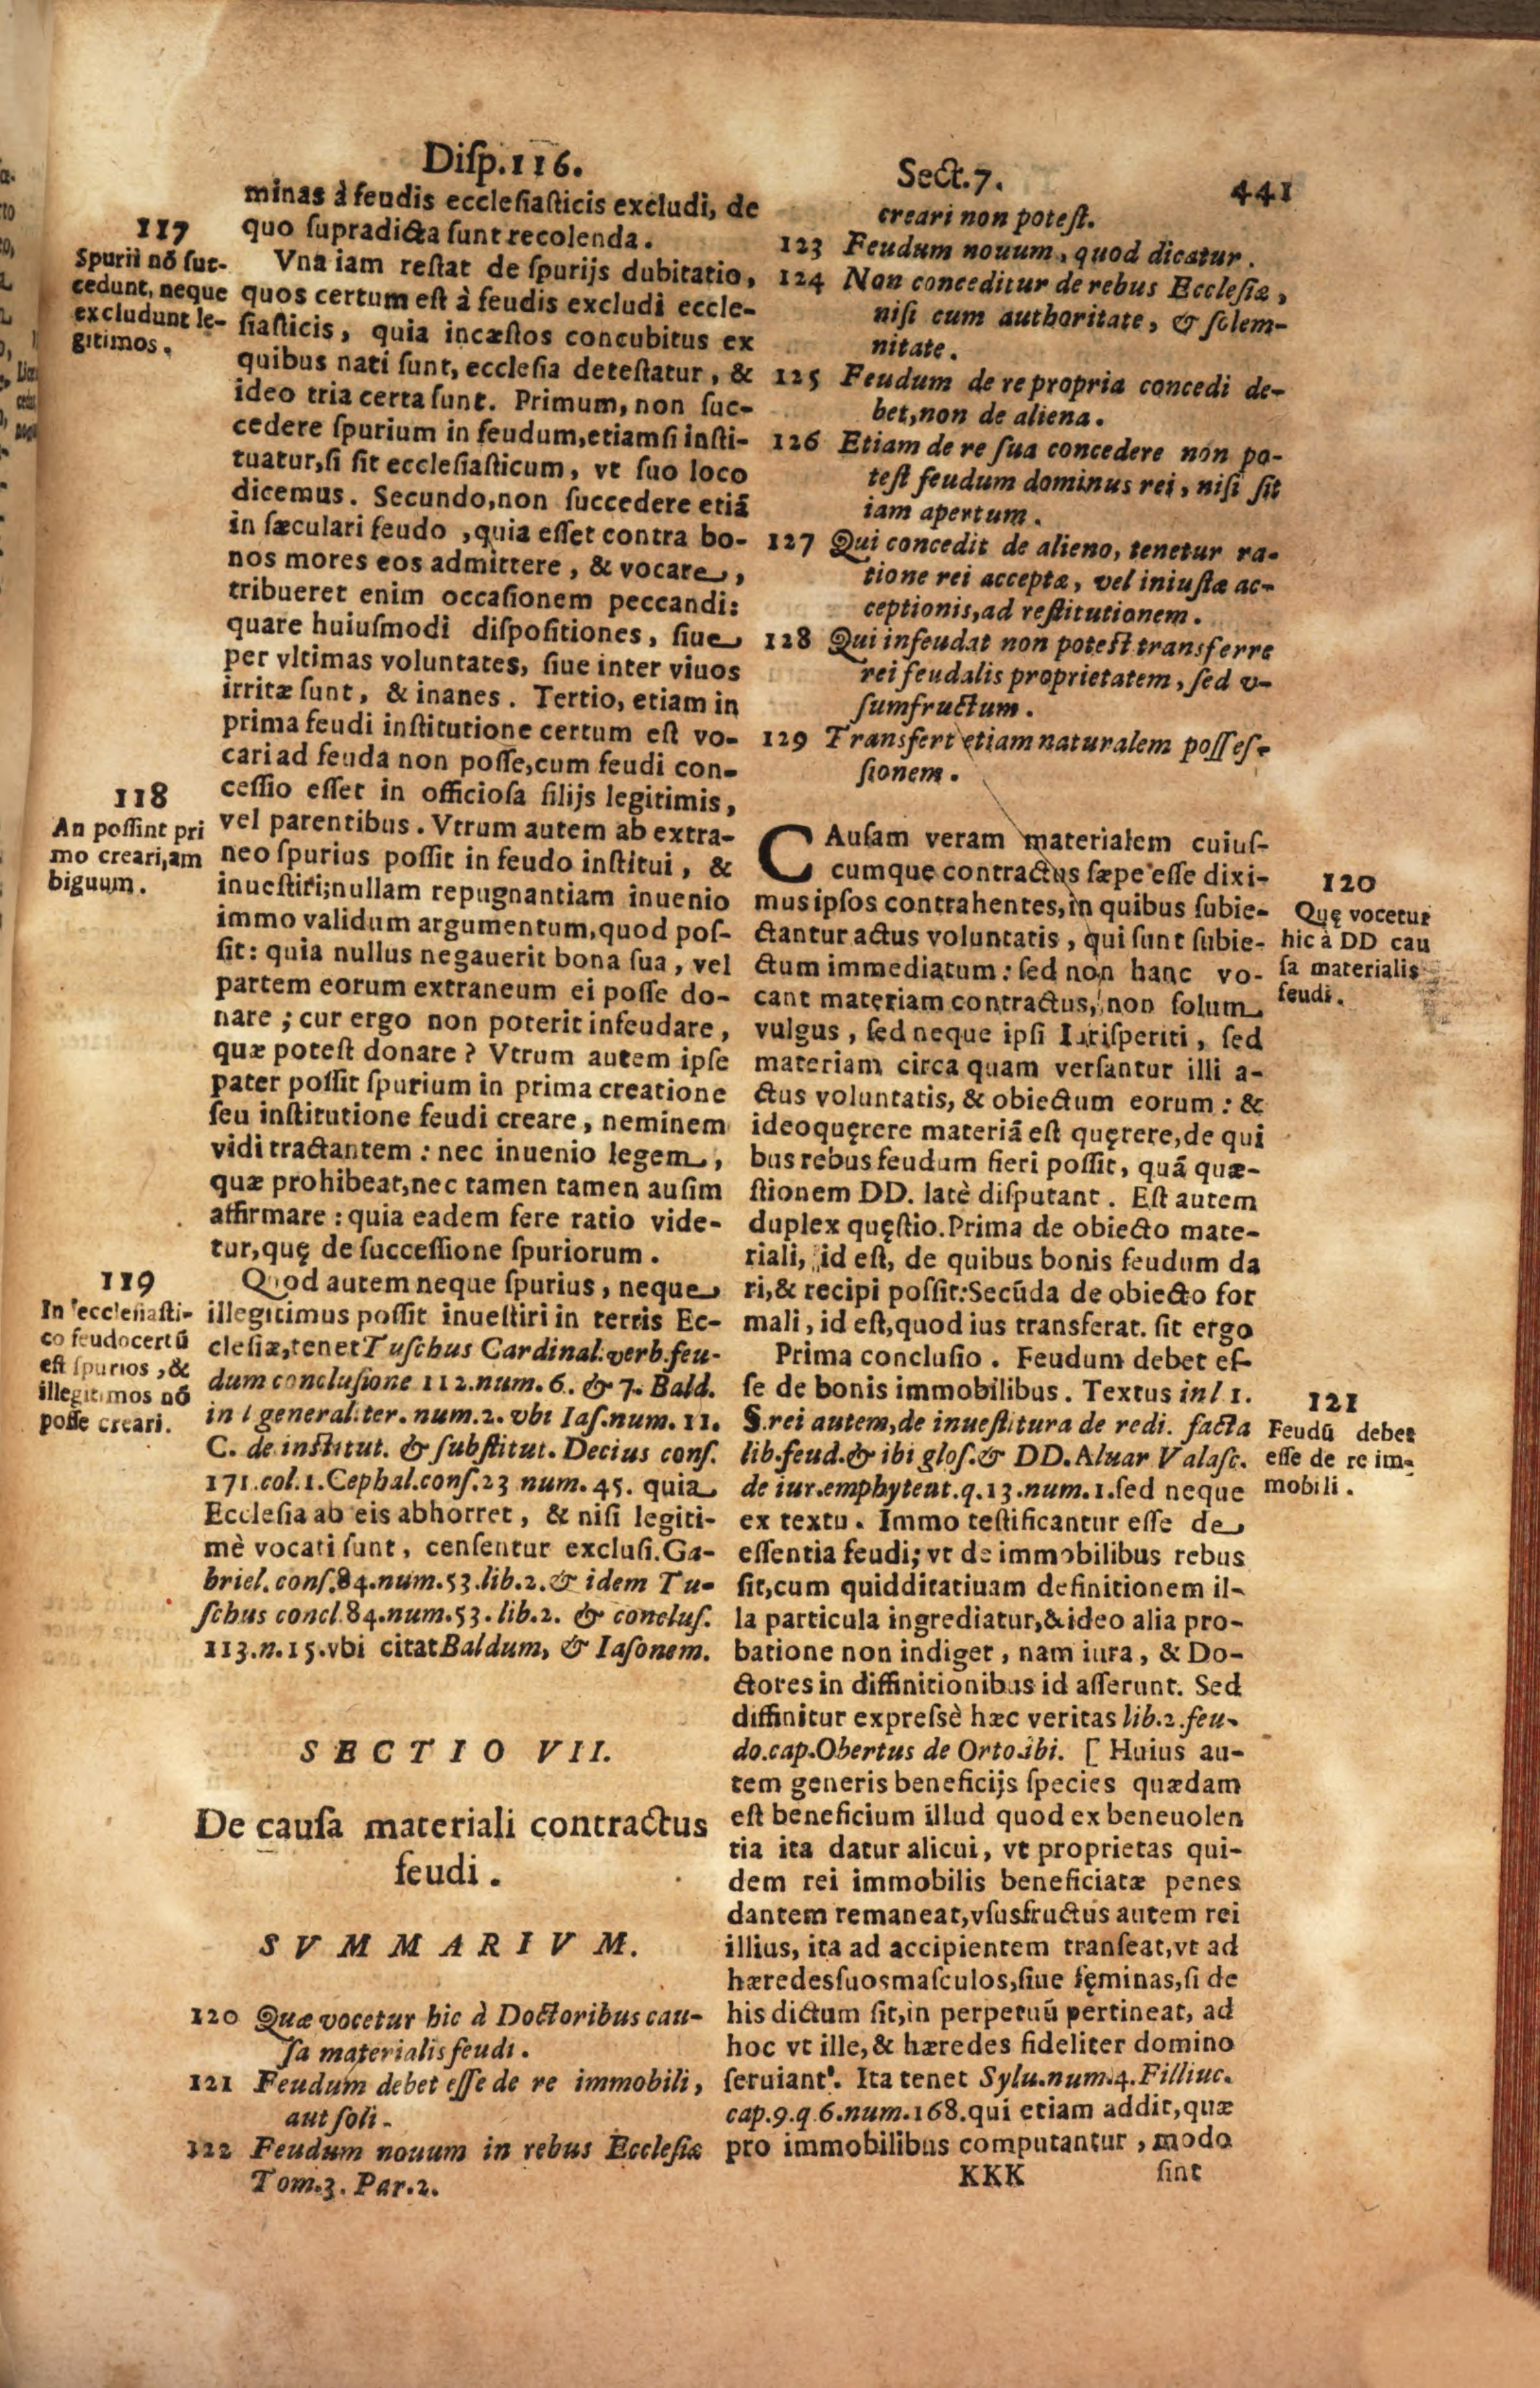 Disp.116.
Sect.7.
441
minas à feudis ecclesiasticis excludi, de
quo supradicta sunt recolenda.
117
Spurii nõ suc-
cedunt, neque
excludunt le-
gitimos.
Vna iam restat de spurijs dubitatio,
quos certum est à feudis excludi eccle-
siasticis, quia incæstos concubitus ex
quibus nati sunt, ecclesia detestatur, &
ideo tria certa sunt. Primum, non suc-
cedere spurium in feudum, etiamsi insti-
tuatur, si sit ecclesiasticum, vt suo loco
dicemus. Secundo, non succedere etiã
in sæculari feudo, quia esset contra bo-
nos mores eos admittere, & vocare,
tribueret enim occasionem peccandi:
quare huiusmodi dispositiones, siue
per vltimas voluntates, siue inter viuos
irritæ sunt, & inanes. Tertio, etiam in
prima feudi institutione certum est vo-
cari ad feuda non posse, cum feudi con-
cessio esset in officiosa filijs legitimis,
vel parentibus. Vtrum autem ab extra-
neo spurius possit in feudo institui, &
inuestiri; nullam repugnantiam inuenio
immo validum argumentum, quod pos-
sit: quia nullus negauerit bona sua, vel
partem eorum extraneum ei posse do-
nare; cur ergo non poterit infeudare,
quæ potest donare? Vtrum autem ipse
pater possit spurium in prima creatione
seu institutione feudi creare, neminem
vidi tractantem: nec inuenio legem,
quæ prohibeat, nec tamen tamen ausim
affirmare: quia eadem fere ratio vide-
tur, quę de successione spuriorum.
118
An possint pri
mo creari, am
biguum.
119
In ecclesiasti-
co feudo certũ
est spurios, &
illegitimos nõ
posse creari.
Quod autem neque spurius, neque
illegitimus possit inuestiri in terris Ec-
clesiæ, tenet Tuschus Cardinal. verb. feu-
dum conclusione 112. num. 6. & 7. Bald.
in l general. ter. num. 2. vbi Ias. num. 11.
C. de institut. & substitut. Decius cons.
171. col. 1. Cephal. cons. 23 num. 45. quia
Ecclesia ab eis abhorret, & nisi legiti-
mè vocati sunt, censentur exclusi. Ga-
briel. cons. 84. num. 53. lib. 2. & idem Tu-
schus concl. 84. num. 53. lib. 2. & conclus.
113. n. 15. vbi citat Baldum, & Iasonem.
SECTIO VII.
De causa materiali contractus
feudi.
SVMMARIVM.
120 Quæ vocetur hic à Doctoribus cau-
sa materialis feudi.
121 Feudum debet esse de re immobili,
aut soli.
122 Feudum nouum in rebus Ecclesiæ
Tom.3. Par.2.
creari non potest.
123 Feudum nouum, quod dicatur.
124 Non conceditur de rebus Ecclesiæ,
nisi cum authoritate, & solem-
nitate.
125 Feudum de re propria concedi de-
bet, non de aliena.
126 Etiam de re sua concedere non po-
test feudum dominus rei, nisi sit
iam apertum.
127 Qui concedit de alieno, tenetur ra-
tione rei acceptæ, vel iniustæ ac-
ceptionis, ad restitutionem.
128 Qui infeudat non potest transferre
rei feudalis proprietatem, sed v-
sumfructum.
129 Transfert etiam naturalem posses-
sionem.
CAusam veram materialem cuius-
cumque contractus sæpe esse dixi-
mus ipsos contrahentes, in quibus subie-
ctantur actus voluntatis, qui sunt subie-
ctum immediatum: sed non hanc vo-
cant materiam contractus, non solum
vulgus, sed neque ipsi Iurisperiti, sed
materiam circa quam versantur illi a-
ctus voluntatis, & obiectum eorum: &
ideo quęrere materiã est quęrere, de qui
bus rebus feudum fieri possit, quã quæ-
stionem DD. latè disputant. Est autem
duplex quęstio. Prima de obiecto mate-
riali, id est, de quibus bonis feudum da
ri, & recipi possit: Secũda de obiecto for
mali, id est, quod ius transferat. sit ergo
120
Quę vocetur
hic à DD cau
sa materialis
feudi.
Prima conclusio. Feudum debet es-
se de bonis immobilibus. Textus in l 1.
§. rei autem, de inuestitura de re di. facta
lib. feud. & ibi glos. & DD. Aluar Valasc.
de iur. emphyteut. q. 13. num. 1. sed neque
ex textu. Immo testificantur esse de
essentia feudi; vt de immobilibus rebus
sit, cum quidditatiuam definitionem il-
la particula ingrediatur, & ideo alia pro-
batione non indiget, nam iura, & Do-
ctores in diffinitionibus id asserunt. Sed
diffinitur expressè hæc veritas lib. 2. feu-
do. cap. Obertus de Orto. ibi. [ Huius au-
tem generis beneficijs species quædam
est beneficium illud quod ex beneuolen
tia ita datur alicui, vt proprietas qui-
dem rei immobilis beneficiatæ penes
dantem remaneat, vsusfructus autem rei
illius, ita ad accipientem transeat, vt ad
hæredes suos masculos, siue fęminas, si de
his dictum sit, in perpetuũ pertineat, ad
hoc vt ille, & hæredes fideliter domino
seruiant'. Ita tenet Sylu. num. 4. Filliuc.
cap. 9. q. 6. num. 168. qui etiam addit, quæ
pro immobilibus computantur, modo
121
Feudũ debet
esse de re im-
mobili.
KKK
sint